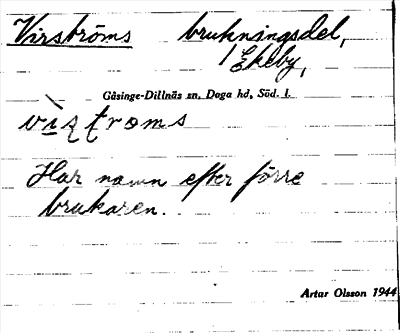 Virströms brukningsdel,
/ Ekeby,
Gåsinge-Dillnäs sn, Daga hd, Söd. l.
vìsʈroms
Har namn efter förre
brukaren.
Artur Olsson 1944